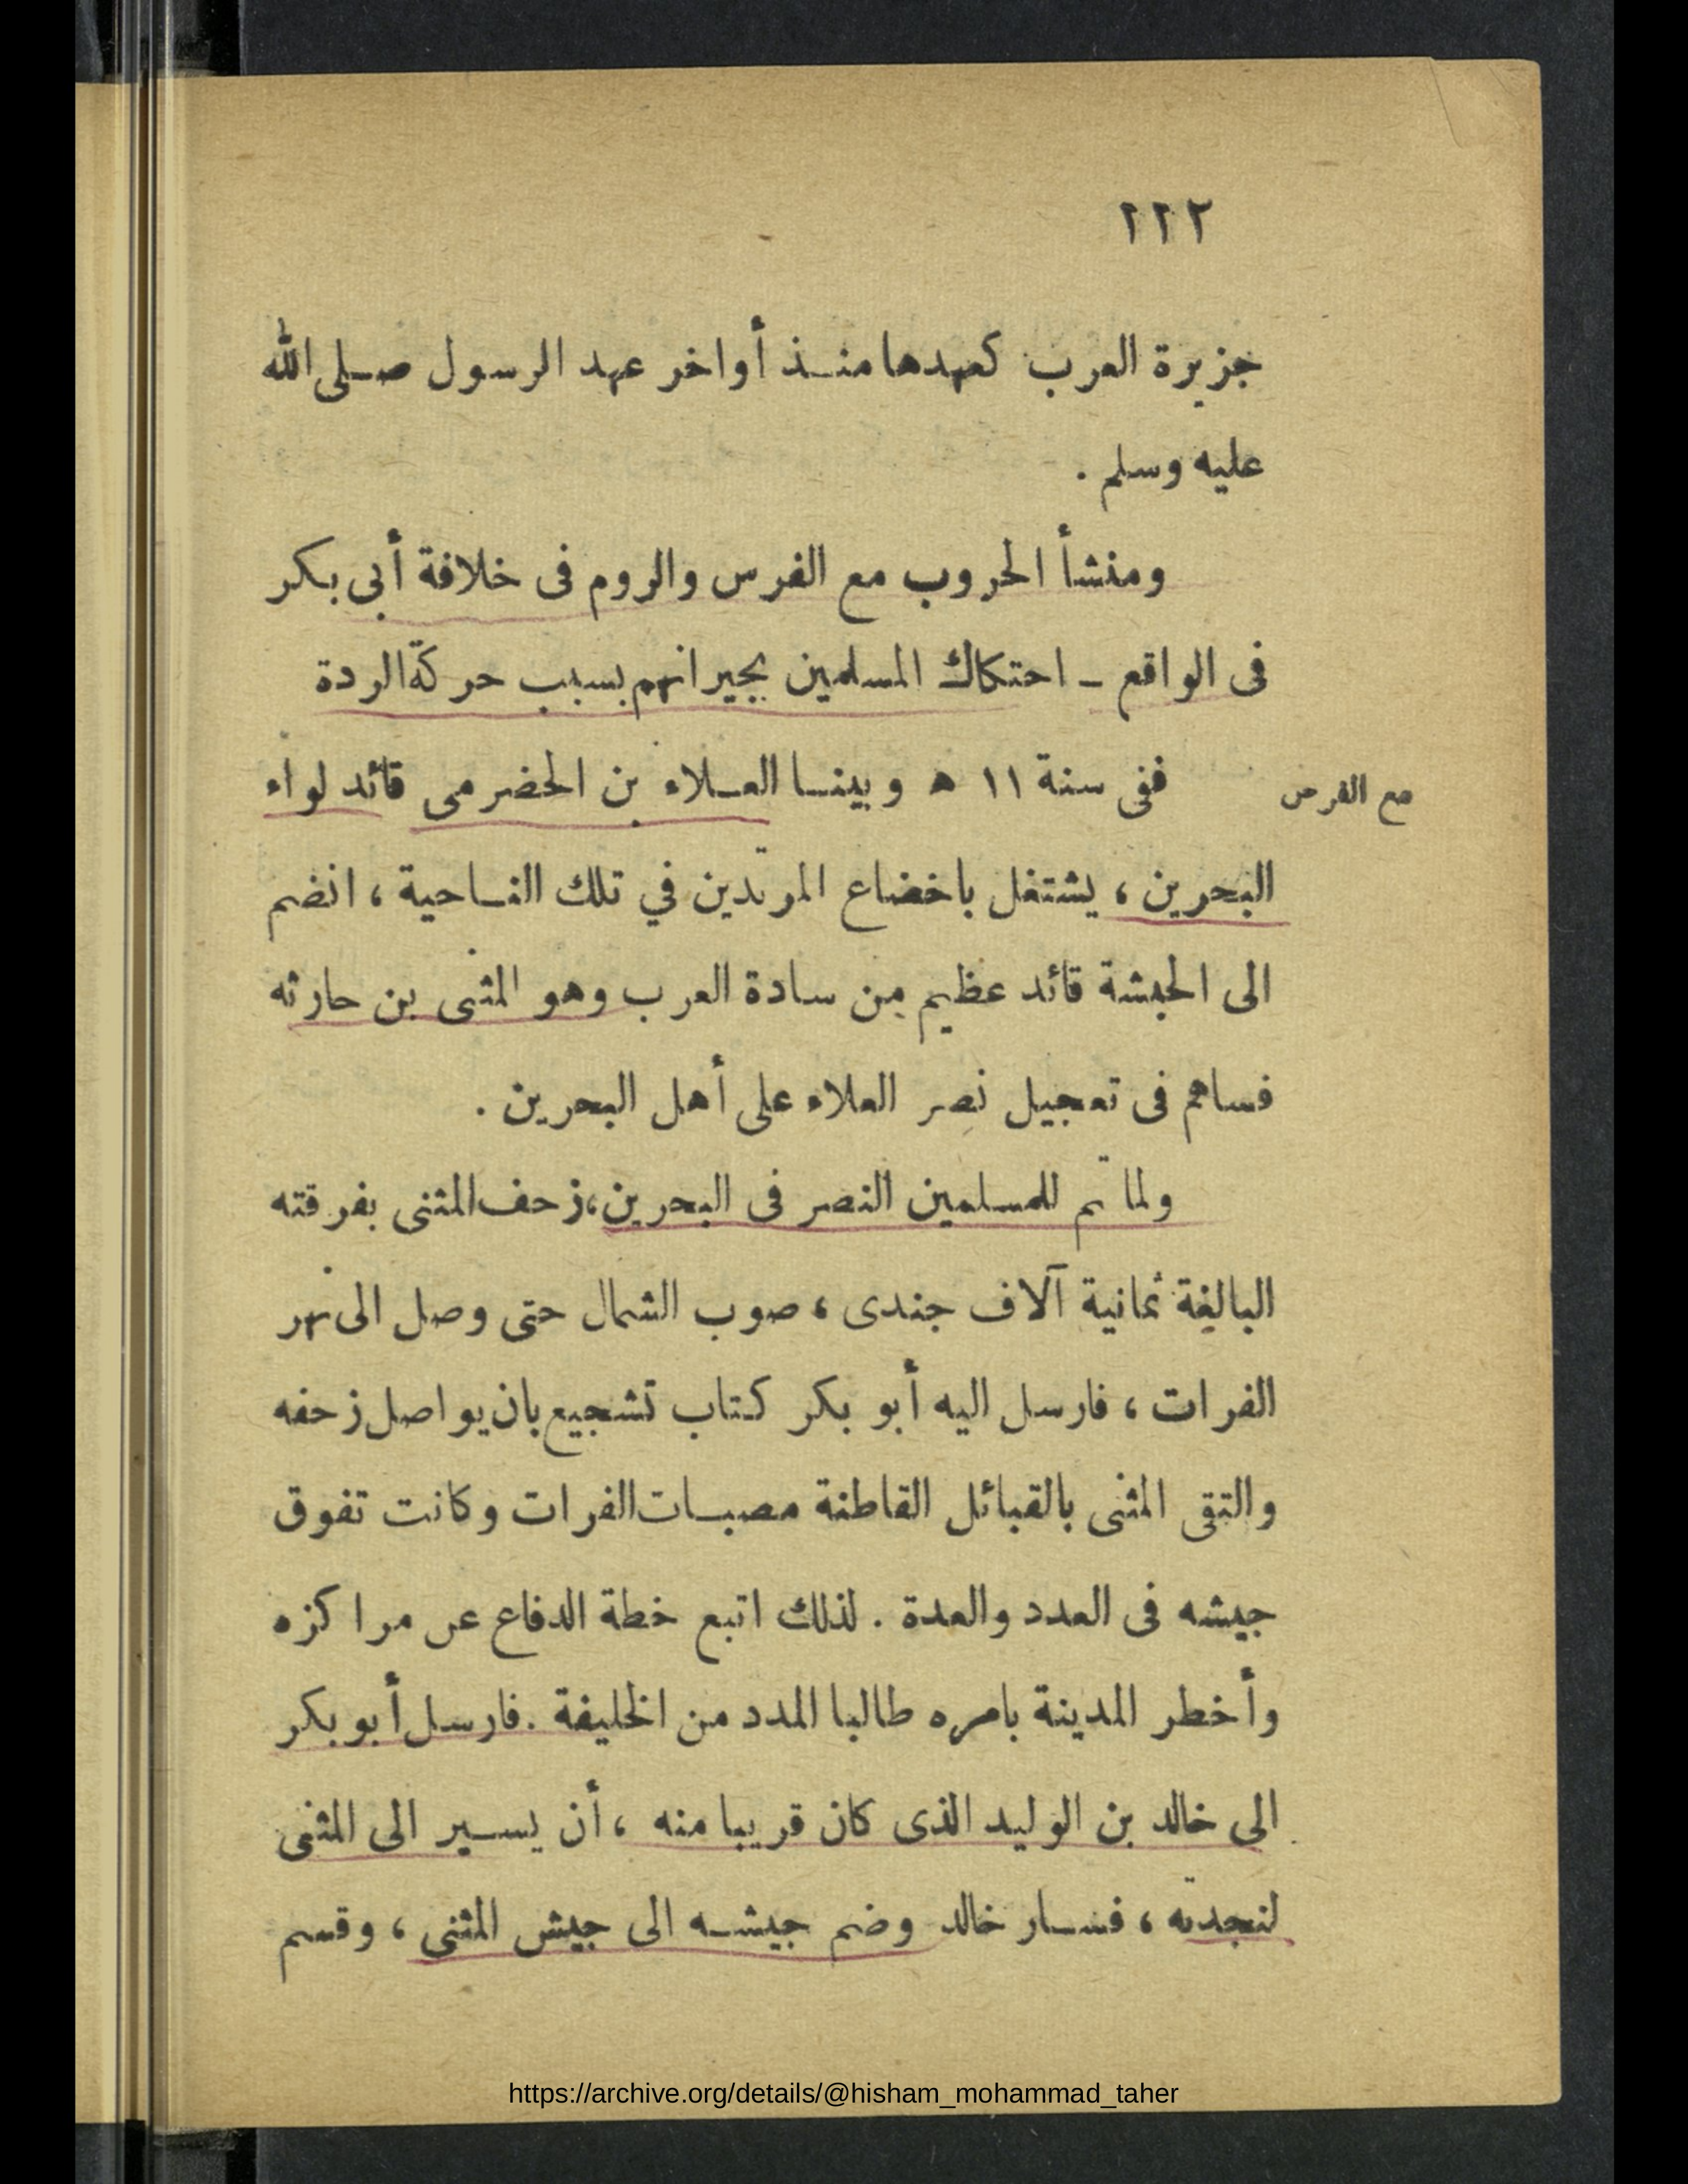 ٢٢٢
جزيرة العرب كعهدها منذ أواخر عهد الرسول صلى الله
عليه وسلم .
ومنشأ الحروب مع الفرس والروم فى خلافة أبى بكر
فى الواقع – احتكاك المسلمين بجيرانهم بسبب حركة الردة
مع الفرس
ففى سنة ١١ ه وبينا العلاء بن الحضرمى قائد لواء
البحرين ، يشتغل باخضاع المرتدين في تلك الناحية ، انضم
الى الحبشة قائد عظيم من سادة العرب وهو المثنى بن حارثه
فساهم فى تعجيل نصر العلاء على أهل البحرين .
ولما تم للمسلمين النصر فى البحرين، زحف المثنى بفرقته
البالغة ثمانية آلاف جندى ، صوب الشمال حتى وصل الى نهر
الفرات ، فارسل اليه أبو بكر كتاب تشجيع بان يواصل زحفه
والتقى المثنى بالقبائل القاطنة مصبات الفرات وكانت تفوق
جيشه فى العدد والعدة . لذلك اتبع خطة الدفاع عن مراكزه
وأخطر المدينة بامره طالبا المدد من الخليفة . فارسل أبو بكر
الى خالد بن الوليد الذى كان قريبا منه ، أن يسير الى المثنى
لنجدته ، فسار خالد وضم جيشه الى جيش المثنى ، وقسم
https://archive.org/details/@hisham_mohammad_taher